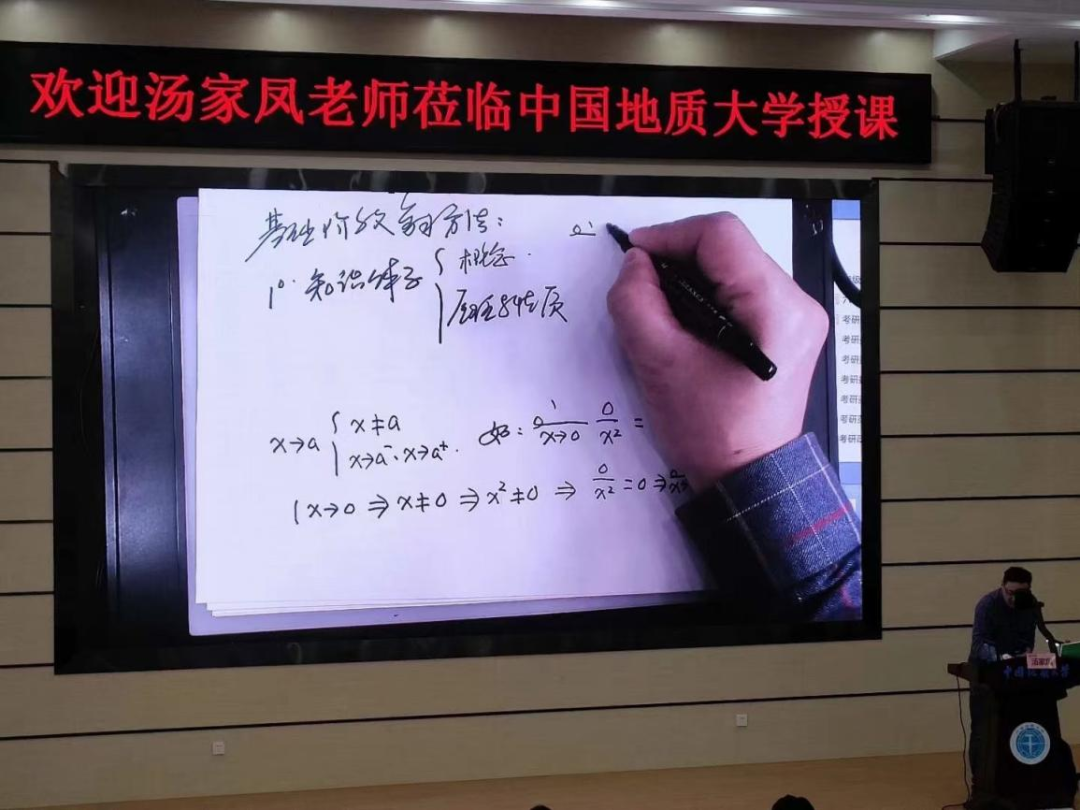 欢迎汤家凤老师莅临中国地质大学授课
基础阶段复习方法：
1°. 知识体系 { 概念.
原理与性质
x→a { x≠a
x→a⁻、x→a⁺.
如: x→0 0/x² =
x→0 ⇒ x≠0 ⇒ x²≠0 ⇒ 0/x² = 0 ⇒
考研
考研
考研
考研
考研
考研
考研
中国地质大学